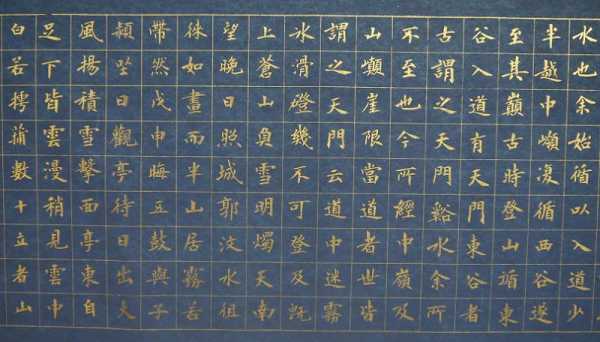 水也余始循以入道少
半越中嶺復循西谷遂
至其巔古時登山循東
谷入道有天門東谷者
古謂之天門谿水余所
不至也今所經中嶺及
山巔崖限當道者世皆
謂之天門云道中迷霧
氷滑磴幾不可登及既
上蒼山負雪明燭天南
望晚日照城郭汶水徂
徠如畫而半山居霧若
帶然戊申晦五鼓與子
潁坐日觀亭待日出大
風揚積雪擊面亭東自
足下皆雲漫稍見雲中
白若摴蒱數十立者山